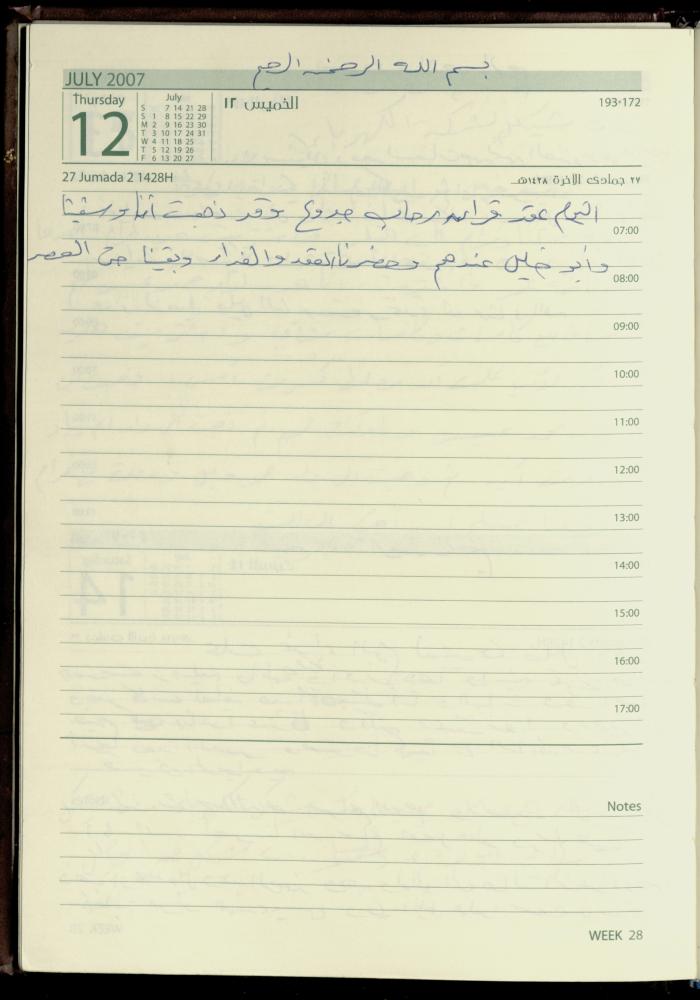 بسم الله الرحمن الرحيم
JULY 2007
Thursday
12
July
S 7 14 21 28
S 1 8 15 22 29
M 2 9 16 23 30
T 3 10 17 24 31
W 4 11 18 25
T 5 12 19 26
F 6 13 20 27
الخميس ١٢
193-172
27 Jumada 2 1428H
٢٧ جمادى الآخرة ١٤٢٨هـ
اليوم عقد قران رحاب جدوع وقد ذهبت أنا و
07:00
وأبو خليل عندهم وحضرنا العقد والغداء وبقينا حتى العصر
08:00
09:00
10:00
11:00
12:00
13:00
14:00
15:00
16:00
17:00
Notes
WEEK 28